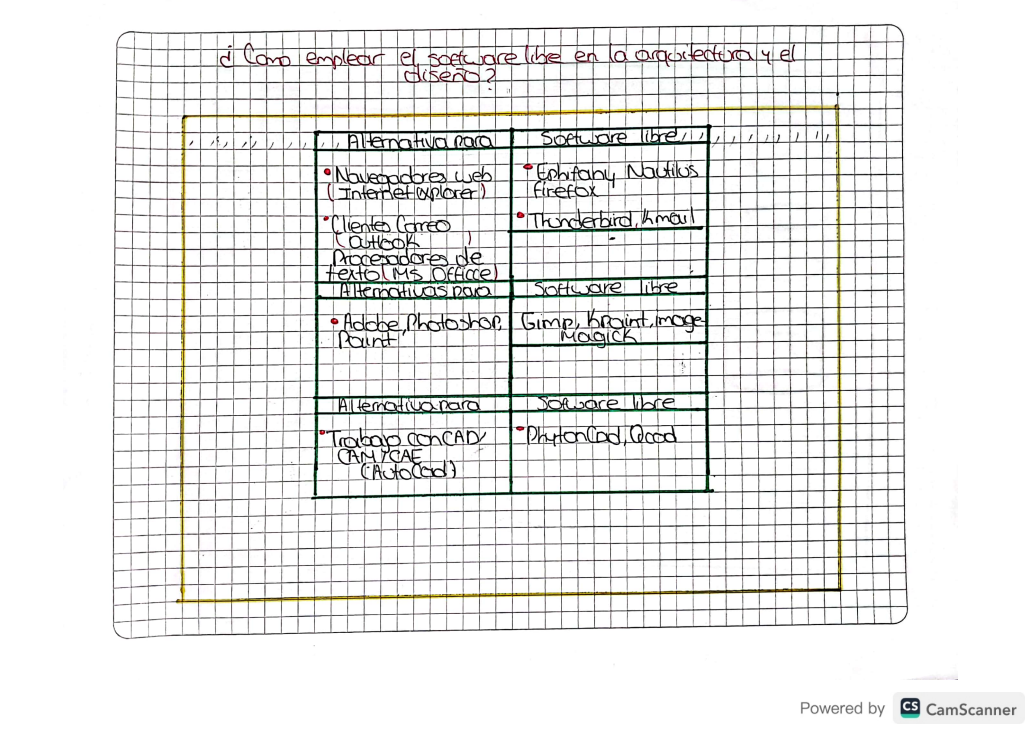 ¿Como emplear el software libre en la arquitectura y el
diseño?
Alternativa para
Software libre
• Navegadores web
(Internet explorer)
• Ephifany Nautilus
Firefox
• Clientes Correo
(Outlook )
Procesadores de
texto (MS Officce)
• Thunderbird, Kmail
Alternativas para
Software libre
• Adobe, Photoshop,
Paint
Gimp, Kpaint, image
Magick
Alternativa para
Software libre
• Trabajo con CAD/
CAM/CAE
(AutoCad)
• PhytonCad, Qcad
Powered by CS CamScanner